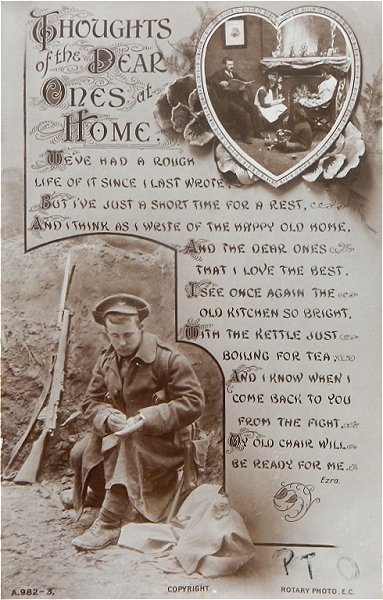 THOUGHTS
of the DEAR
ONES at
HOME.
WE'VE HAD A ROUGH
LIFE OF IT SINCE I LAST WROTE,
BUT I'VE JUST A SHORT TIME FOR A REST,
AND I THINK AS I WRITE OF THE HAPPY OLD HOME,
AND THE DEAR ONES
THAT I LOVE THE BEST.
I SEE ONCE AGAIN THE
OLD KITCHEN SO BRIGHT,
WITH THE KETTLE JUST
BOILING FOR TEA,
AND I KNOW WHEN I
COME BACK TO YOU
FROM THE FIGHT,
MY OLD CHAIR WILL
BE READY FOR ME.
Ezra.
PTO
A.982-3.
COPYRIGHT
ROTARY PHOTO. E.C.